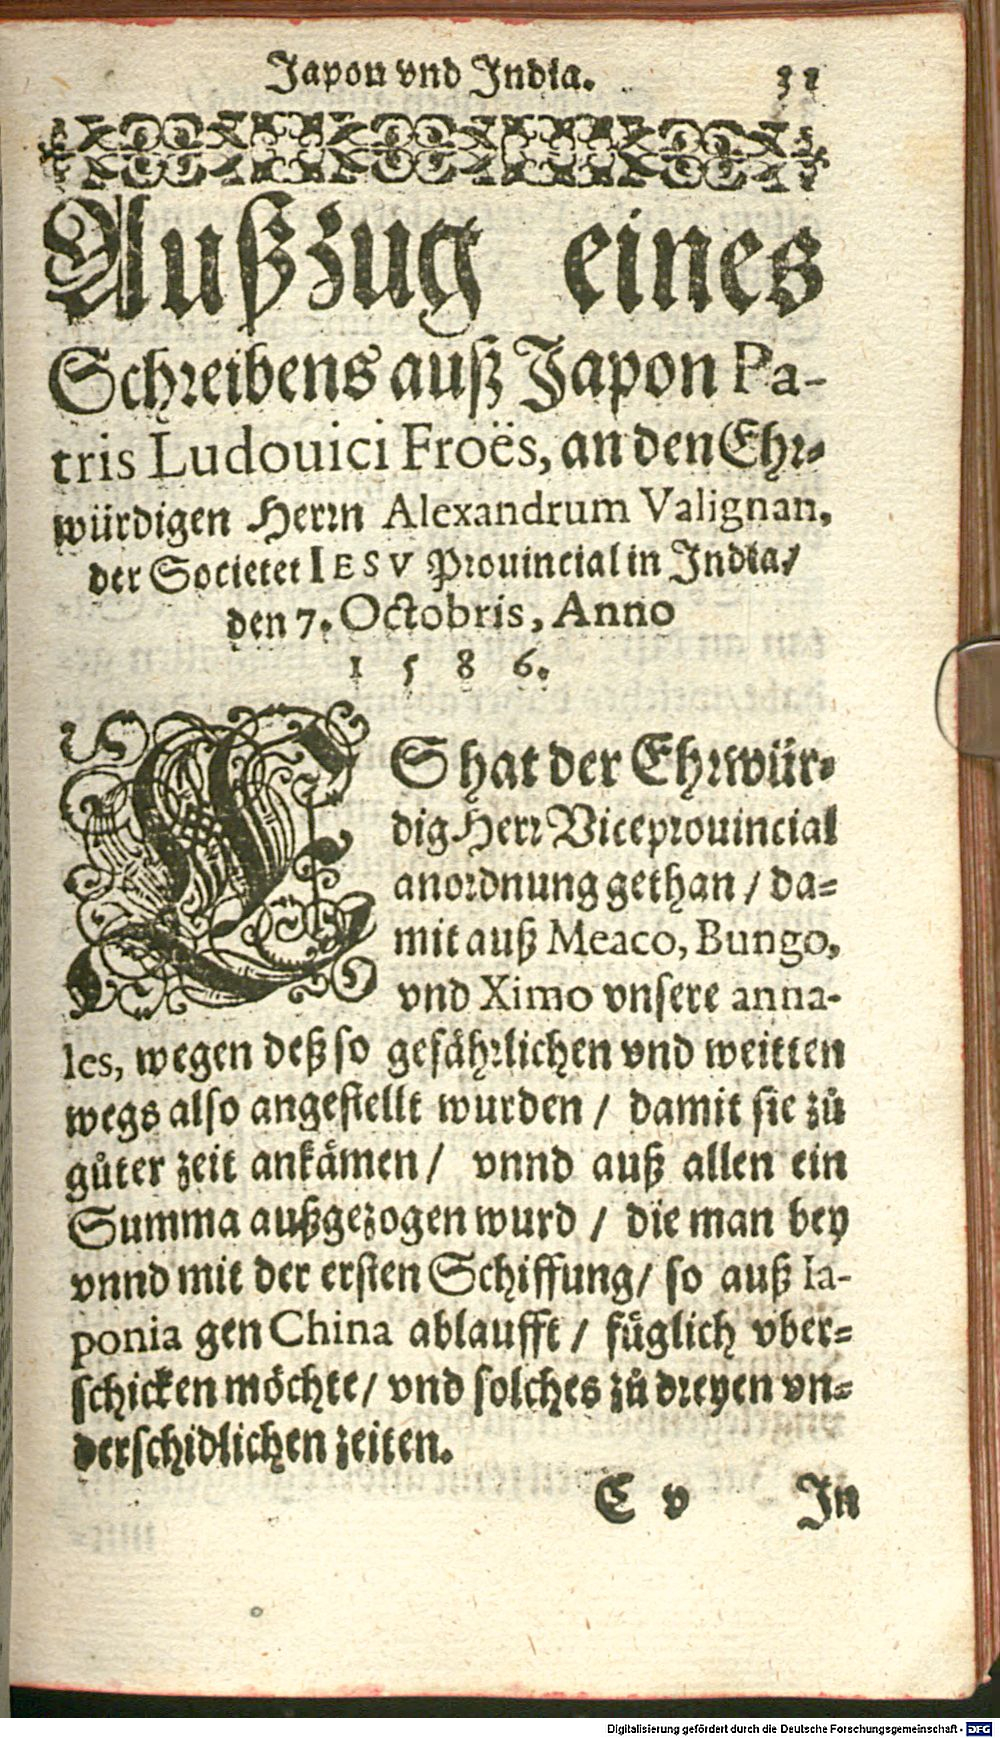 Japon vnd India. 31
Außzug eines
Schreibens auß Japon Pa-
tris Ludouici Froës, an den Ehr-
würdigen Herrn Alexandrum Valignan,
der Societet IESV Prouincial in India/
den 7. Octobris, Anno
1586.
ES hat der Ehrwür-
dig Herr Viceprouincial
anordnung gethan / da-
mit auß Meaco, Bungo,
vnd Ximo vnsere anna-
les, wegen deß so gefährlichen vnd weitten
wegs also angestellt wurden / damit sie zů
gůter zeit ankämen / vnnd auß allen ein
Summa außgezogen wurd / die man bey
vnnd mit der ersten Schiffung / so auß Ia-
ponia gen China ablaufft / füglich vber-
schicken möchte / vnd solches zů dreyen vn-
derschidlichen zeiten.
C v In
Digitalisierung gefördert durch die Deutsche Forschungsgemeinschaft - DFG